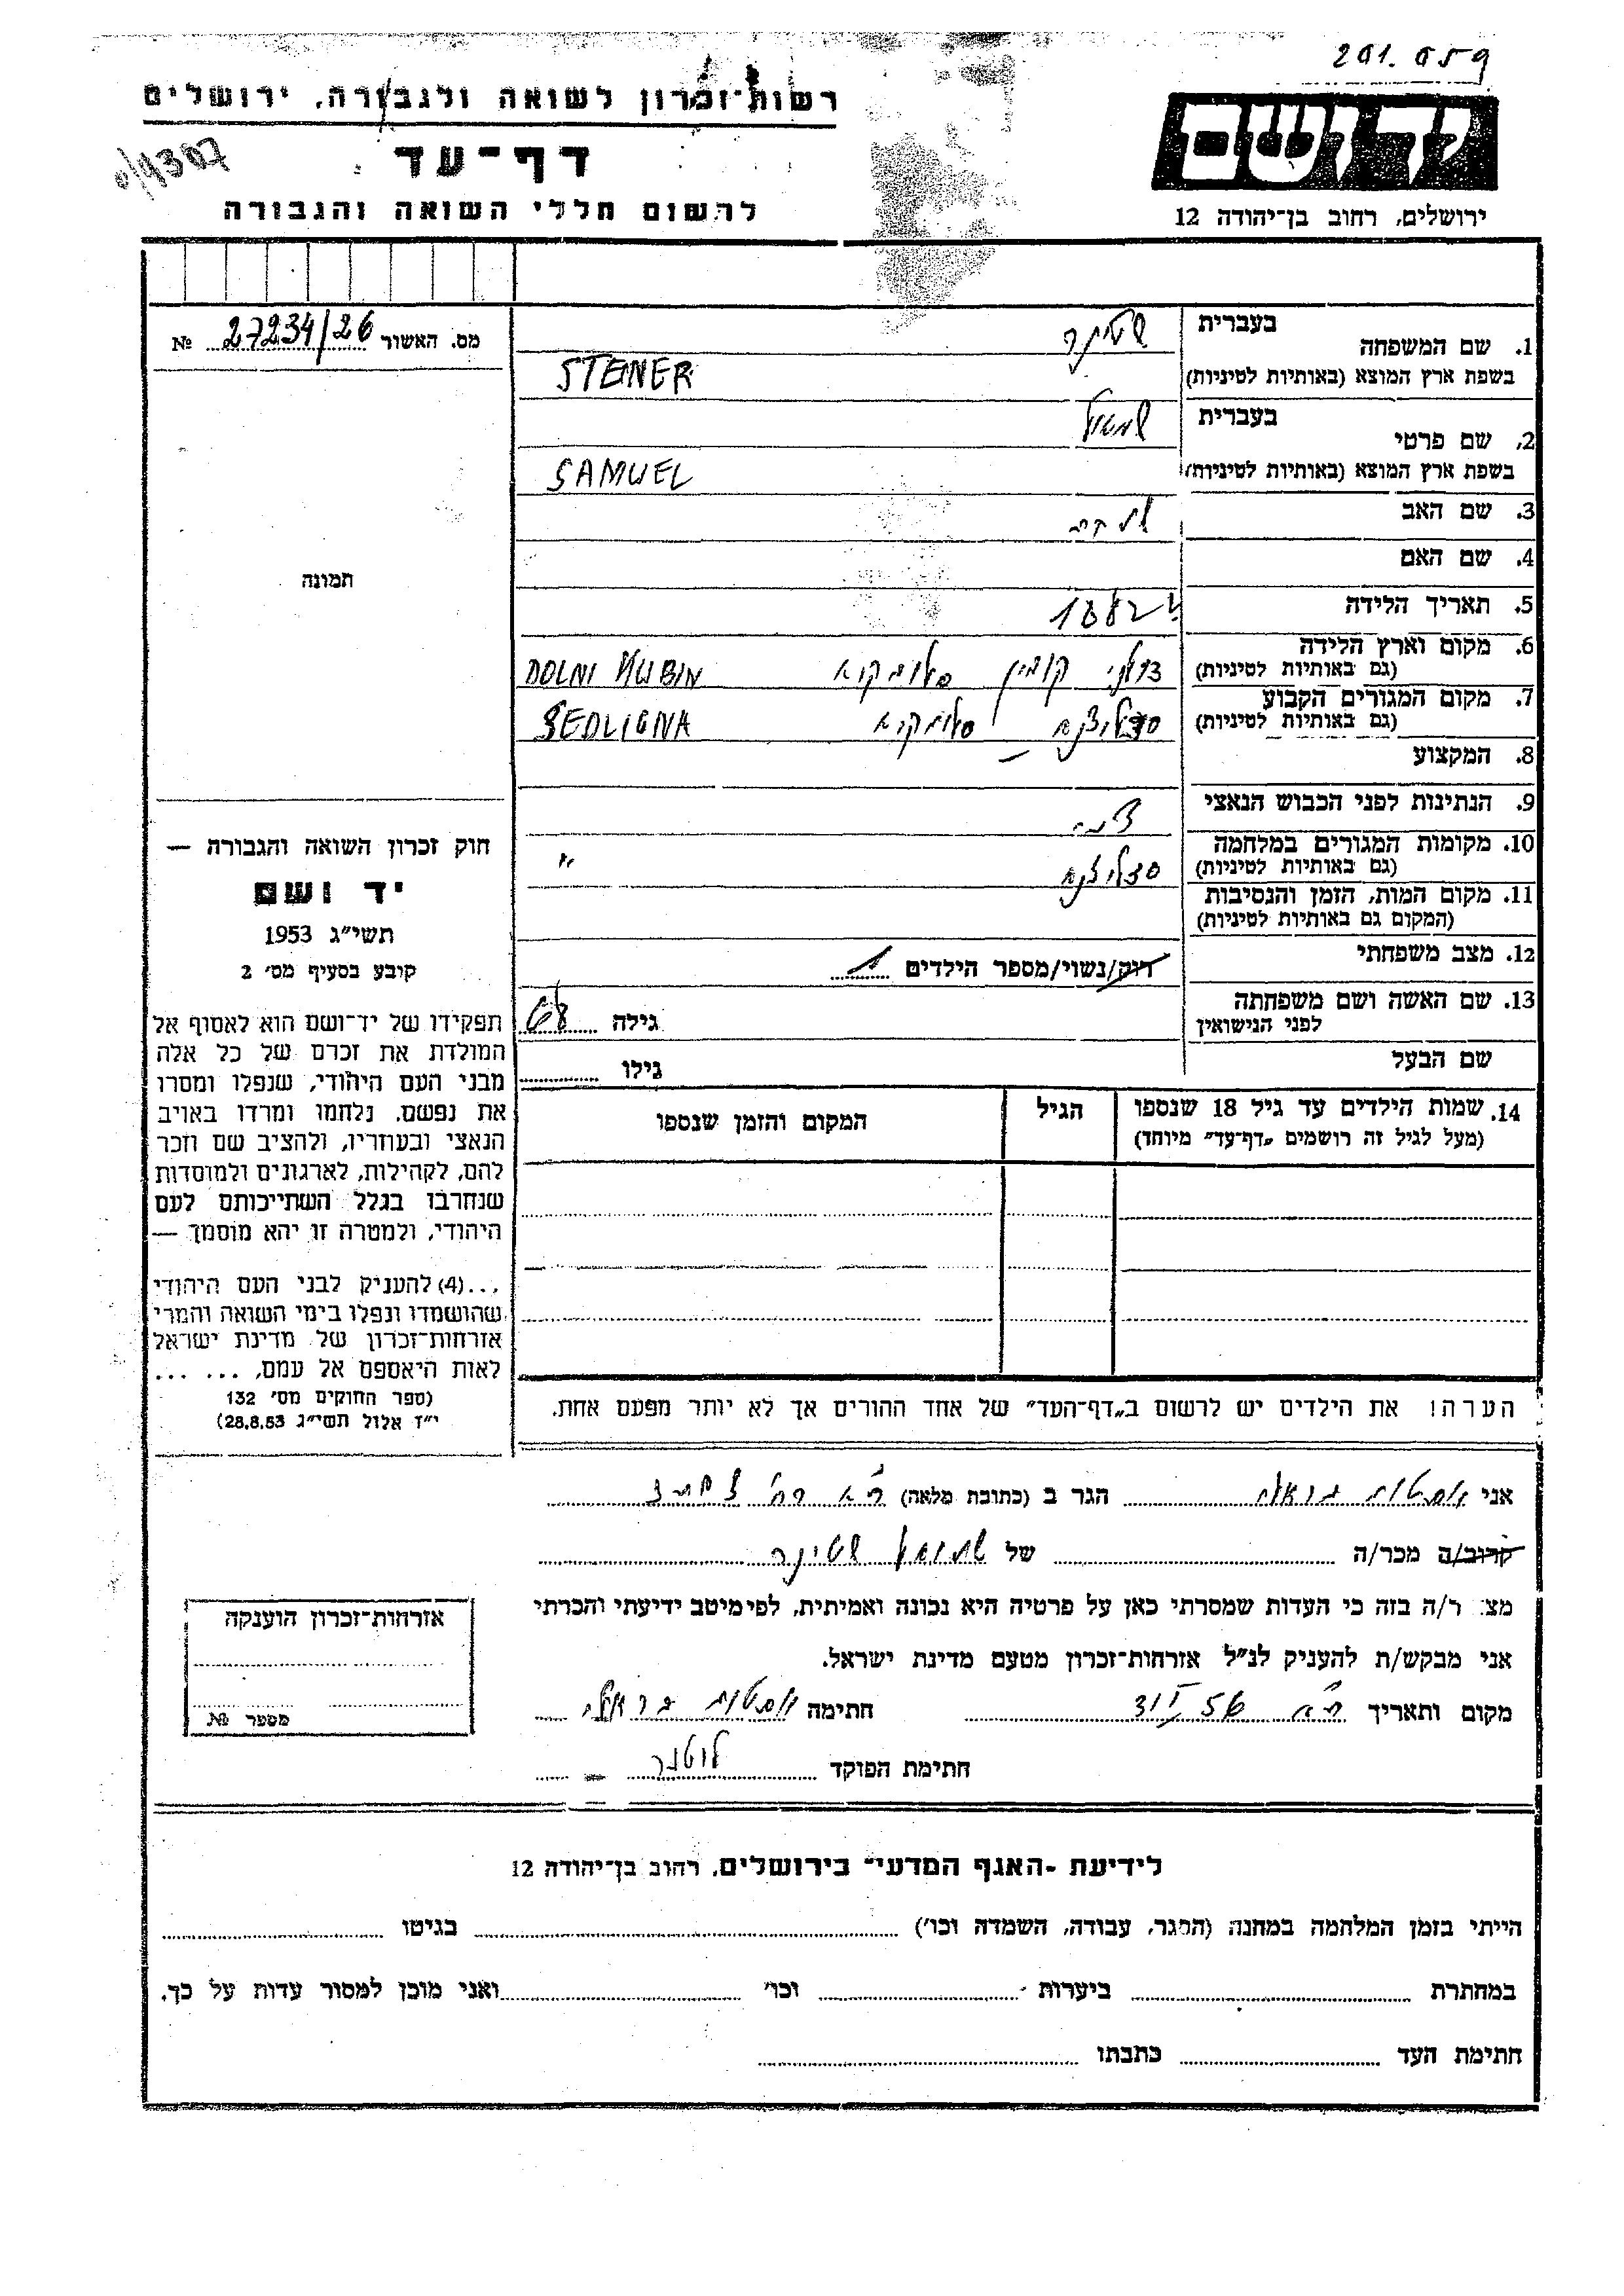 201.059
רשות־זכרון לשואה ולגבורה, ירושלים
דף־עד
לרשום חללי השואה והגבורה
ידושם
ירושלים, רחוב בן־יהודה 12
מס. האשור 27234/26 №
תמונה
בעברית
1. שם המשפחה שטינר
בשפת ארץ המוצא (באותיות לטיניות) STEINER
בעברית
2. שם פרטי שמואל
בשפת ארץ המוצא (באותיות לטיניות) SAMUEL
3. שם האב
4. שם האם
5. תאריך הלידה 1882
6. מקום וארץ הלידה
(גם באותיות לטיניות) דולני קובין סלובקיא DOLNI KUBIN
7. מקום המגורים הקבוע
(גם באותיות לטיניות) סלובקיא
8. המקצוע
9. הנתינות לפני הכבוש הנאצי
10. מקומות המגורים במלחמה
(גם באותיות לטיניות) "
11. מקום המות, הזמן והנסיבות
(המקום גם באותיות לטיניות)
12. מצב משפחתי רווק/נשוי/מספר הילדים 1
13. שם האשה ושם משפחתה
לפני הנישואין גילה
שם הבעל גילו
14. שמות הילדים עד גיל 18 שנספו הגיל המקום והזמן שנספו
(מעל לגיל זה רושמים „דף־עד״ מיוחד)
הערה! את הילדים יש לרשום ב„דף־העד״ של אחד ההורים אך לא יותר מפעם אחת.
חוק זכרון השואה והגבורה —
יד ושם
תשי״ג 1953
קובע בסעיף מס׳ 2
תפקידו של יד־ושם הוא לאסוף אל
המולדת את זכרם של כל אלה
מבני העם היהודי, שנפלו ומסרו
את נפשם, נלחמו ומרדו באויב
הנאצי ובעוזריו, ולהציב שם וזכר
להם, לקהילות, לארגונים ולמוסדות
שנחרבו בגלל השתייכותם לעם
היהודי, ולמטרה זו יהא מוסמך —
...(4) להעניק לבני העם היהודי
שהושמדו ונפלו בימי השואה והמרי
אזרחות־זכרון של מדינת ישראל
לאות היאספם אל עמם, ... ...
(ספר החוקים מס׳ 132
י״ז אלול תשי״ג 28.8.53)
אני הגר ב (כתובת מלאה) ת״א רח׳
קרוב/ה מכר/ה של שמואל שטינר
מצ ר/ה בזה כי העדות שמסרתי כאן על פרטיה היא נכונה ואמיתית, לפי מיטב ידיעתי והכרתי
אני מבקש/ת להעניק לנ״ל אזרחות־זכרון מטעם מדינת ישראל.
מקום ותאריך ת״א חתימה
חתימת הפוקד
אזרחות־זכרון הוענקה
מספר №
לידיעת ־האגף המדעי־ בירושלים, רחוב בן־יהודה 12
הייתי בזמן המלחמה במחנה (הסגר, עבודה, השמדה וכו׳) בגיטו
במחתרת ביערות וכו׳ ואני מוכן למסור עדות על כך.
חתימת העד כתבתו